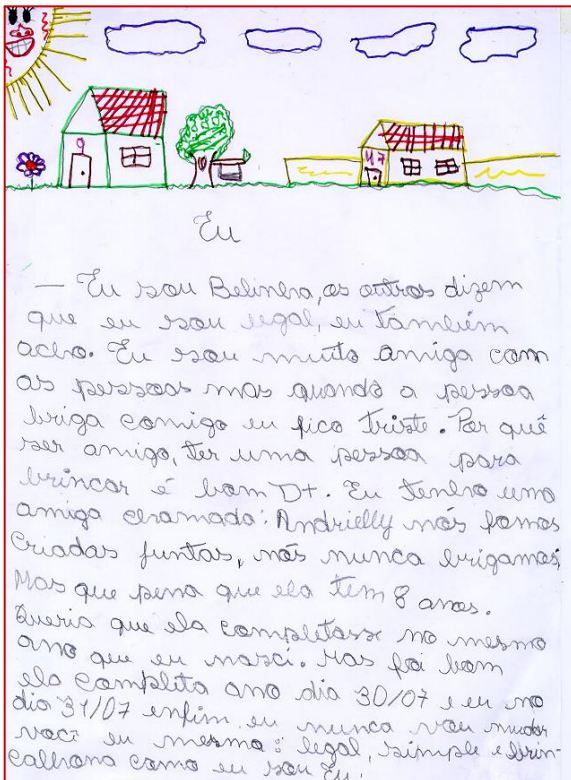 Eu
— Eu sou Belinha, os outros dizem
que eu sou legal, eu também
acho. Eu sou muito amiga com
as pessoas mas quando a pessoa
briga comigo eu fico triste. Por quê
ser amigo, ter uma pessoa para
brincar é bom D+. Eu tenho uma
amiga chamada: Andrielly nós fomos
criadas juntas, nós nunca brigamos,
Mas que pena que ela tem 8 anos.
Queria que ela completasse no mesmo
ano que eu nasci. Mas foi bom
ela completa ano dia 30/07 e eu no
dia 31/07 enfim eu nunca vou mudar
você eu mesma: legal, simple e brin-
calhona como eu sou Eu!